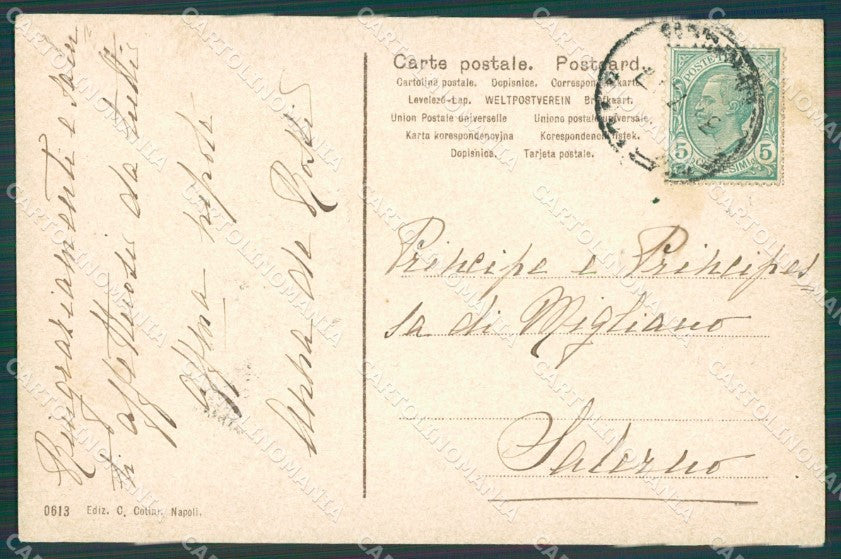 Carte postale. Postcard.
Cartolina postale. Dopisnice. Correspondenzkarte.
Levelező-Lap. WELTPOSTVEREIN Briefkaart.
Union Postale universelle Unione postale universale
Karta korespondencyjna Korespondencni listek.
Dopisnica. Tarjeta postale.
POSTE
5 CENTESIMI 5
Ringraziamenti e salu
ti affettuosi da tutti
Principe e Principes
sa di Migliano
Salerno
0613 Ediz. C. Cotini, Napoli.
CARTOLINOMANIA